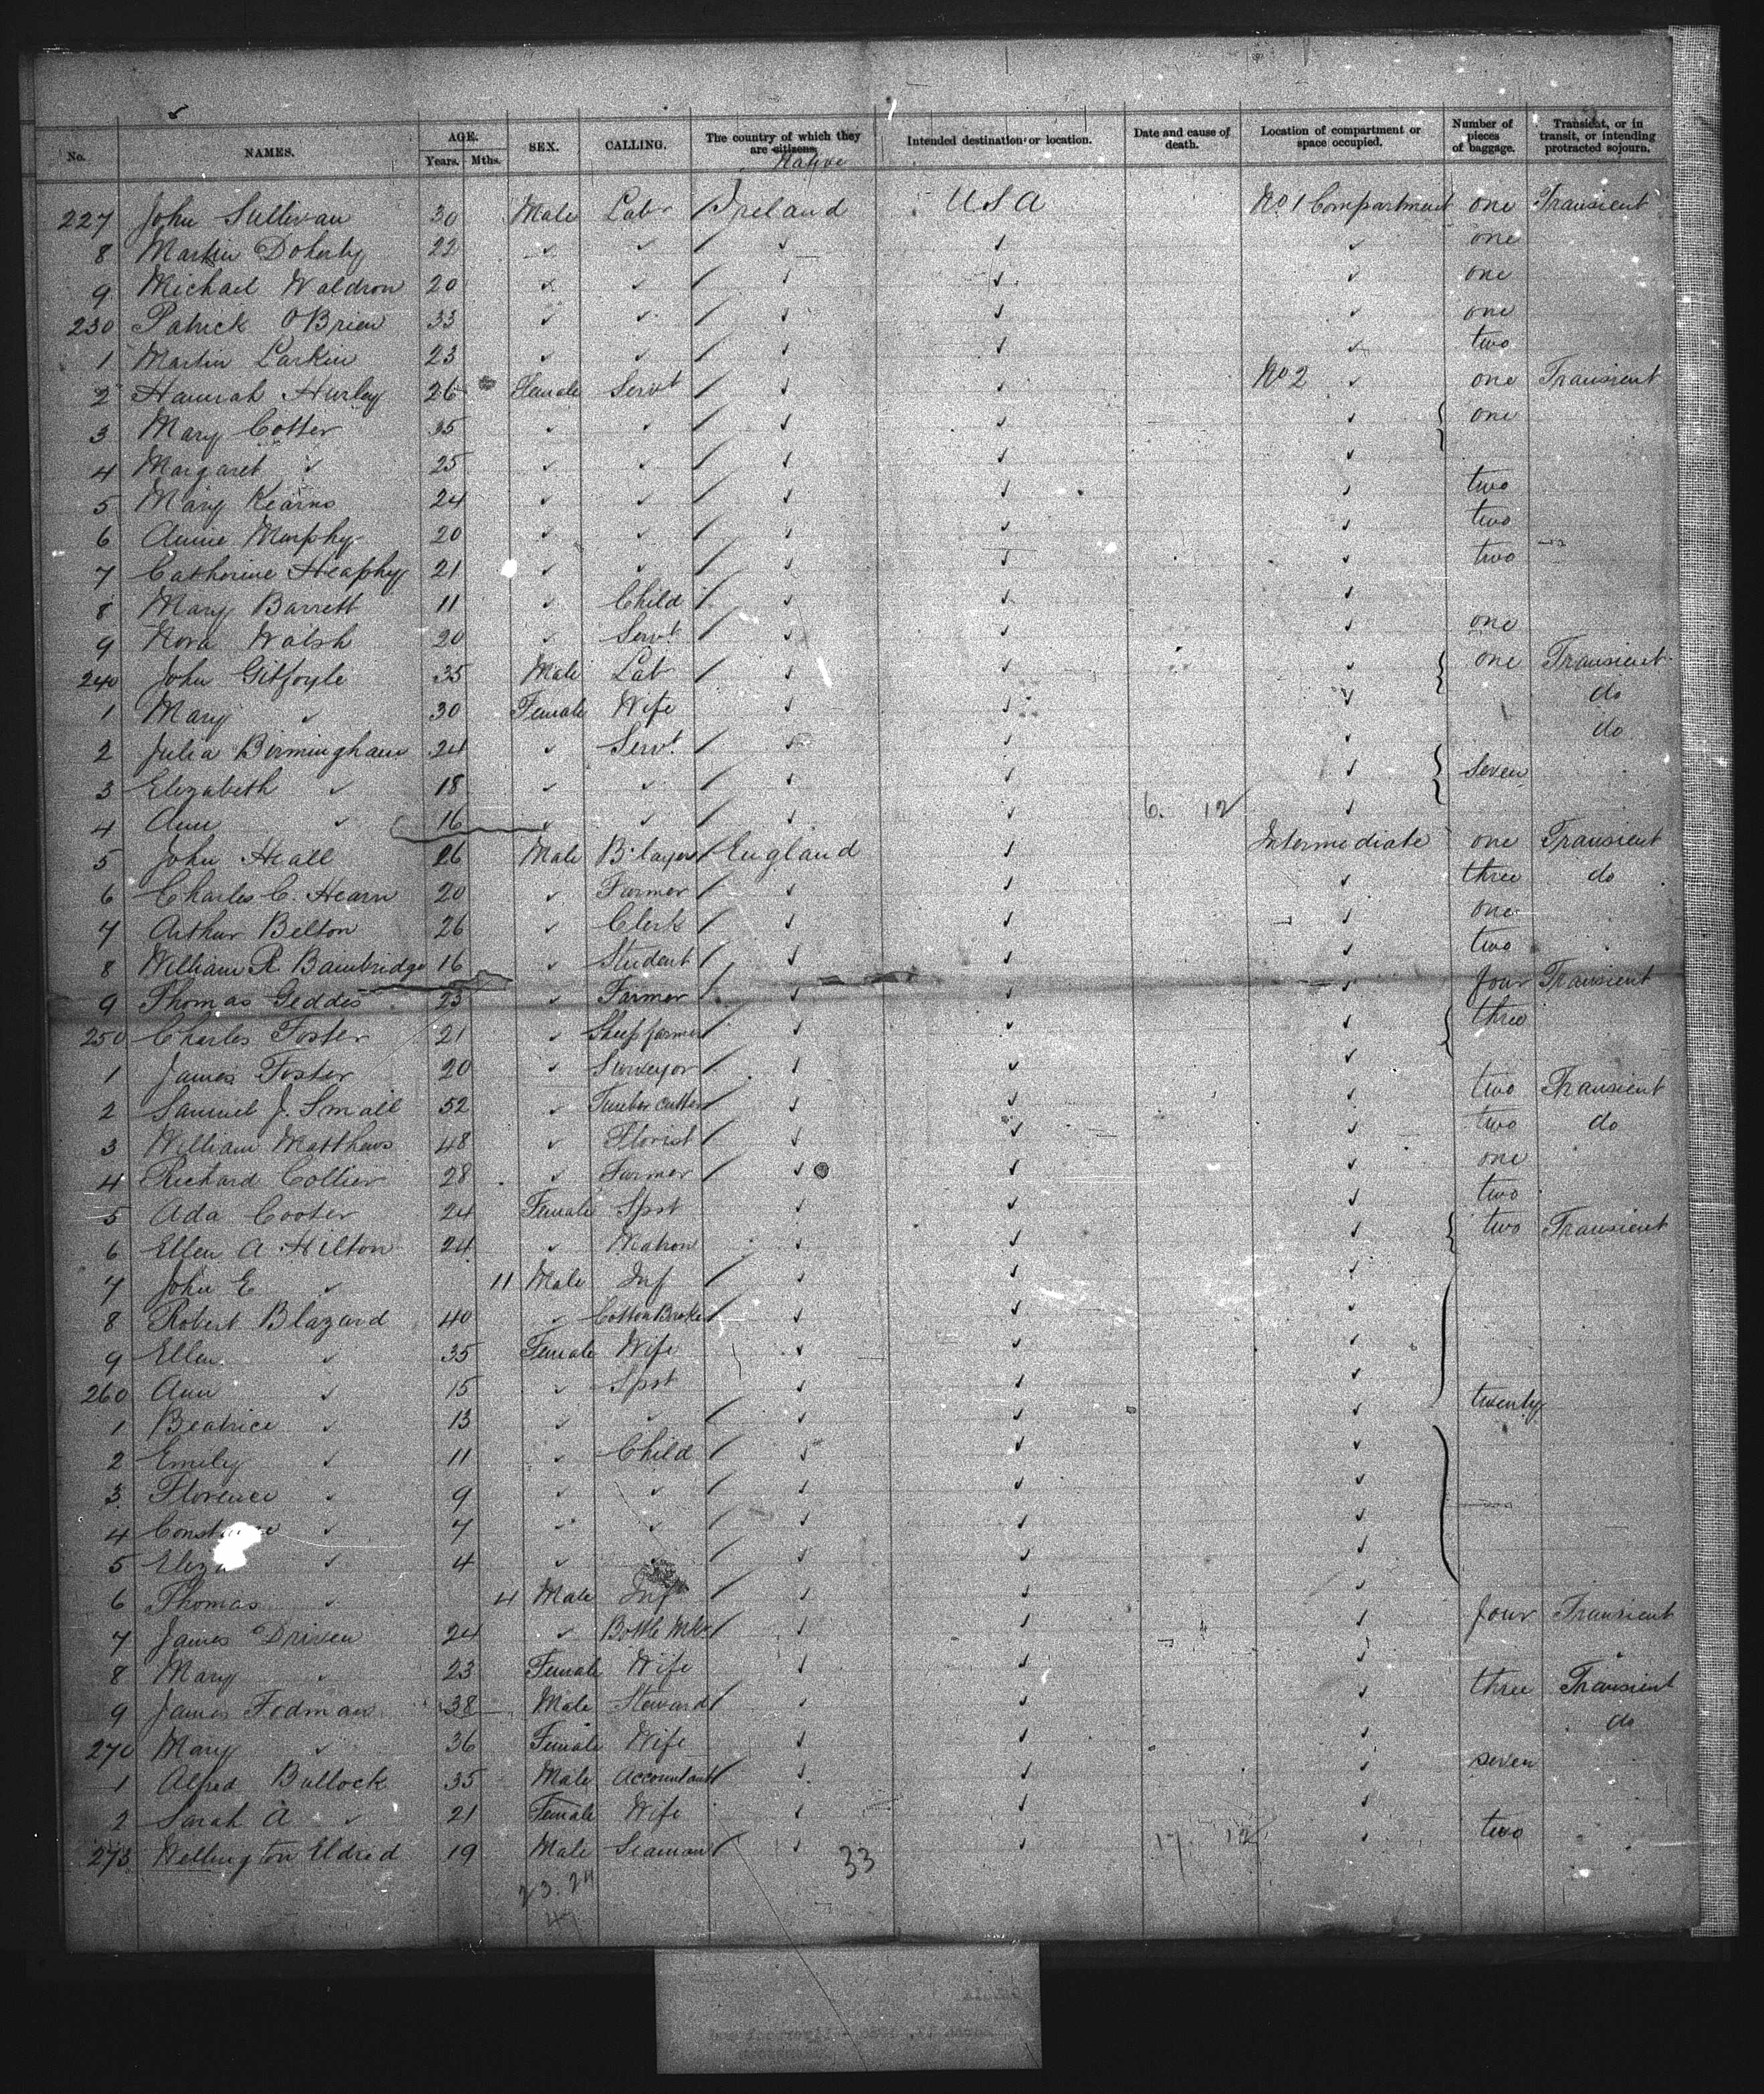 No. NAMES. AGE. Years. Mths. SEX. CALLING. The country of which they are citizens. Native Intended destination or location. Date and cause of death. Location of compartment or space occupied. Number of pieces of baggage. Transient, or in transit, or intending protracted sojourn.
227 John Sullivan 30 Male Labr Ireland USA No 1 Compartment one Transient
8 Martin Doherty 22 ✓ ✓ ✓ ✓ ✓ one
9 Michael Waldron 20 ✓ ✓ ✓ ✓ ✓ one
230 Patrick O'Brien 33 ✓ ✓ ✓ ✓ ✓ one
1 Martin Larkin 23 ✓ ✓ ✓ ✓ ✓ two
2 Hannah Hurley 26 Female Servt ✓ ✓ No 2 ✓ one Transient
3 Mary Cotter 35 ✓ ✓ ✓ ✓ ✓ one
4 Margaret ✓ 25 ✓ ✓ ✓ ✓ ✓
5 Mary Kearns 24 ✓ ✓ ✓ ✓ ✓ two
6 Annie Murphy 20 ✓ ✓ ✓ ✓ ✓ two
7 Catherine Heaphy 21 ✓ ✓ ✓ ✓ ✓ two
8 Mary Barrett 11 ✓ Child ✓ ✓ ✓
9 Nora Walsh 20 ✓ Servt ✓ ✓ ✓ one
240 John Gilfoyle 35 Male Lab ✓ ✓ ✓ one Transient
1 Mary ✓ 30 Female Wife ✓ ✓ ✓ do
2 Julia Birmingham 24 ✓ Servt ✓ ✓ ✓ do
3 Elizabeth ✓ 18 ✓ ✓ ✓ ✓ ✓ Seven
4 Ann ✓ 16 ✓ ✓ ✓ ✓ 6. 12 ✓
5 John Heall 26 Male B'layer England ✓ Intermediate one Transient
6 Charles C. Hearn 20 ✓ Farmer ✓ ✓ ✓ three do
7 Arthur Belton 26 ✓ Clerk ✓ ✓ ✓ one
8 William R. Bainbridge 16 ✓ Student ✓ ✓ ✓ two
9 Thomas Geddes 23 ✓ Farmer ✓ ✓ ✓ four Transient
250 Charles Foster 21 ✓ Sheep farmer ✓ ✓ ✓ three
1 James Foster 20 ✓ Surveyor ✓ ✓ ✓
2 Samuel J. Small 52 ✓ Timber Cutter ✓ ✓ ✓ two Transient
3 William Matthews 48 ✓ Florist ✓ ✓ ✓ two do
4 Richard Collier 28 ✓ Farmer ✓ ✓ ✓ one
5 Ada Cooter 24 Female Spst ✓ ✓ ✓ two
6 Ellen A Hilton 24 ✓ Matron ✓ ✓ ✓ two Transient
7 John E ✓ 11 Male Inf ✓ ✓ ✓
8 Robert Blazard 40 ✓ Cotton Broker ✓ ✓ ✓
9 Ellen ✓ 35 Female Wife ✓ ✓ ✓
260 Ann ✓ 15 ✓ Spst ✓ ✓ ✓ twenty
1 Beatrice ✓ 13 ✓ ✓ ✓ ✓ ✓
2 Emily ✓ 11 ✓ Child ✓ ✓ ✓
3 Florence ✓ 9 ✓ ✓ ✓ ✓ ✓
4 ✓ 7 ✓ ✓ ✓ ✓ ✓
5 Eliza ✓ 4 ✓ ✓ ✓ ✓ ✓
6 Thomas ✓ 4 Male Inf ✓ ✓ ✓
7 James Driven 24 ✓ Bottle Mkr ✓ ✓ ✓ four Transient
8 Mary ✓ 23 Female Wife ✓ ✓ ✓
9 James Fodman 38 Male Steward ✓ ✓ ✓ three Transient
270 Mary ✓ 36 Female Wife ✓ ✓ do
1 Alfred Bullock 35 Male Accountant ✓ ✓ ✓ seven
2 Sarah A ✓ 21 Female Wife ✓ ✓ ✓
273 Wellington Eldred 19 Male Seaman ✓ ✓ 17. 12 ✓ two
33
23. 24
47